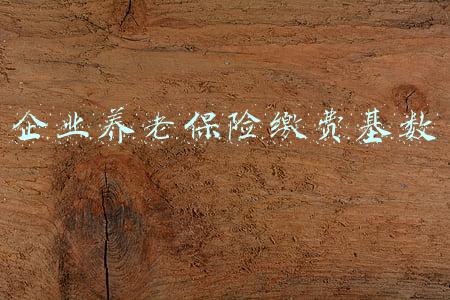 企业养老保险缴费基数